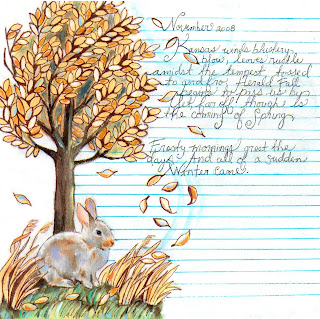 November 2008
Kansas winds blustery
blow, leaves rustle
amidst the tempest, tossed
to and fro, Herald Fall
appears to pass us by
Yet far off though is
the coming of Spring
Frosty mornings greet the
days. And all of a sudden
Winter came.